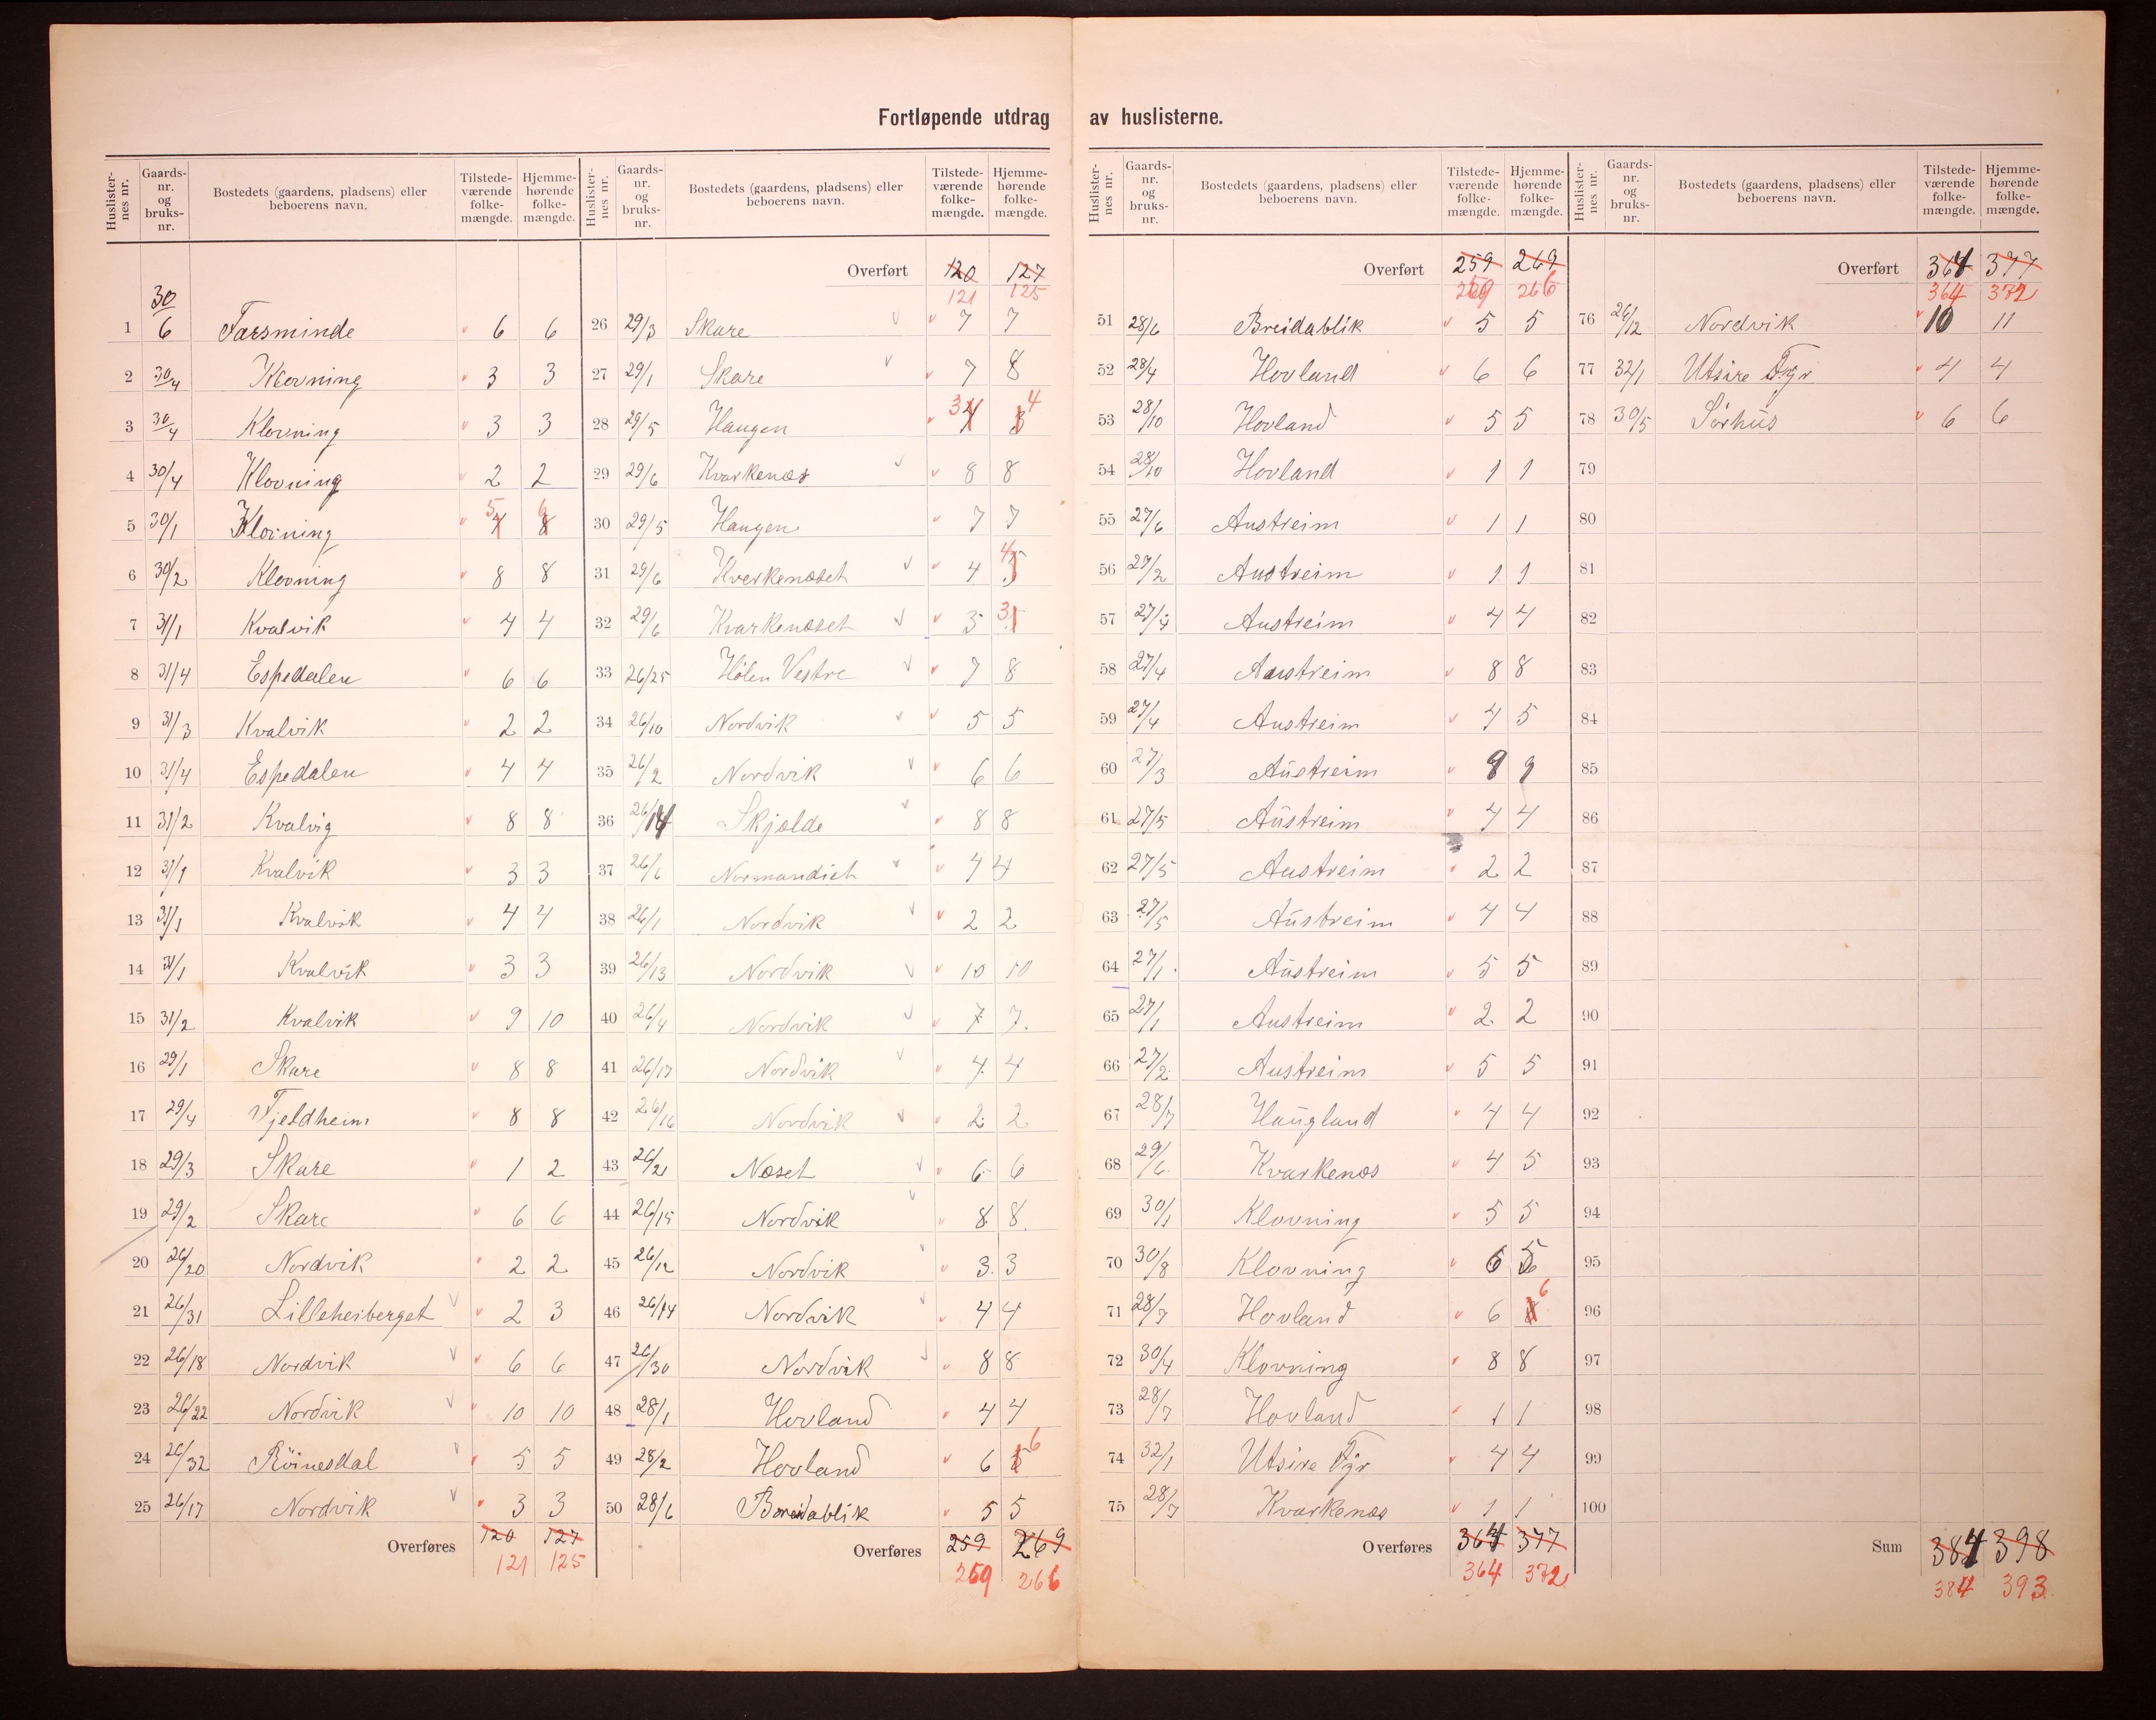 Fortløpende utdrag av huslisterne.
Huslister-nes nr. Gaards-nr. og bruks-nr. Bostedets (gaardens, pladsens) eller beboerens navn. Tilstede-værende folke-mængde. Hjemme-hørende folke-mængde.
1 30/6 Farsminde 6 6
2 30/4 Klovning 3 3
3 30/4 Klovning 3 3
4 30/4 Klovning 2 2
5 30/1 Klovning 4 5 8 6
6 30/2 Klovning 8 8
7 31/1 Kvalvik 4 4
8 31/4 Espedalen 6 6
9 31/3 Kvalvik 2 2
10 31/4 Espedalen 4 4
11 31/2 Kvalvig 8 8
12 31/1 Kvalvik 3 3
13 31/1 Kvalvik 4 4
14 31/1 Kvalvik 3 3
15 31/2 Kvalvik 9 10
16 29/1 Skare 8 8
17 29/4 Fjeldheim 8 8
18 29/3 Skare 1 2
19 29/2 Skare 6 6
20 26/20 Nordvik 2 2
21 26/31 Lilleheiberget 2 3
22 26/18 Nordvik 6 6
23 26/22 Nordvik 10 10
24 26/32 Röinesdal 5 5
25 26/17 Nordvik 3 3
Overføres 120 127
121 125
Huslister-nes nr. Gaards-nr. og bruks-nr. Bostedets (gaardens, pladsens) eller beboerens navn. Tilstede-værende folke-mængde. Hjemme-hørende folke-mængde.
Overført 120 127
121 125
26 29/3 Skare 7 7
27 29/1 Skare 7 8
28 29/5 Haugen 3 4
29 29/6 Kvarkenæs 8 8
30 29/5 Haugen 7 7
31 29/6 Kverkenæset 4 5 4
32 29/6 Kvarkenæset 3 3
33 26/25 Hølen Vestre 7 8
34 26/10 Nordvik 5 5
35 26/2 Nordvik 6 6
36 26/14 Skjolde 8 8
37 26/6 Normandiet 4 4
38 26/1 Nordvik 2 2
39 26/13 Nordvik 10 10
40 26/4 Nordvik 7 7
41 26/17 Nordvik 4 4
42 26/16 Nordvik 2 2
43 26/21 Næset 6 6
44 26/15 Nordvik 8 8
45 26/12 Nordvik 3 3
46 26/14 Nordvik 4 4
47 26/30 Nordvik 8 8
48 28/1 Hovland 4 4
49 28/2 Hovland 6 5 6
50 28/6 Breidablik 5 5
Overføres 259 269
259 266
Huslister-nes nr. Gaards-nr. og bruks-nr. Bostedets (gaardens, pladsens) eller beboerens navn. Tilstede-værende folke-mængde. Hjemme-hørende folke-mængde.
Overført 259 269
259 266
51 28/6 Breidablik 5 5
52 28/4 Hovland 6 6
53 28/10 Hovland 5 5
54 28/10 Hovland 1 1
55 27/6 Austreim 1 1
56 27/2 Austreim 1 1
57 27/4 Austreim 4 4
58 27/4 Austreim 8 8
59 27/4 Austreim 4 5
60 27/3 Austreim 9 9
61 27/5 Austreim 4 4
62 27/5 Austreim 2 2
63 27/5 Austreim 4 4
64 27/1 Austreim 5 5
65 27/1 Austreim 2 2
66 27/2 Austreim 5 5
67 28/7 Haugland 4 4
68 29/6 Kvarkenæs 4 5
69 30/1 Klovning 5 5
70 30/8 Klovning 6 5
71 28/7 Hovland 6 8 6
72 30/4 Klovning 8 8
73 28/7 Hovland 1 1
74 32/1 Utsire Fyr 4 4
75 28/7 Kvarkenæs 1 1
Overføres 364 377
364 372
Huslister-nes nr. Gaards-nr. og bruks-nr. Bostedets (gaardens, pladsens) eller beboerens navn. Tilstede-værende folke-mængde. Hjemme-hørende folke-mængde.
Overført 364 377
364 372
76 26/12 Nordvik 10 11
77 32/1 Utsire Fyr 4 4
78 30/5 Sørhus 6 6
79
80
81
82
83
84
85
86
87
88
89
90
91
92
93
94
95
96
97
98
99
100
Sum 384 398
384 393